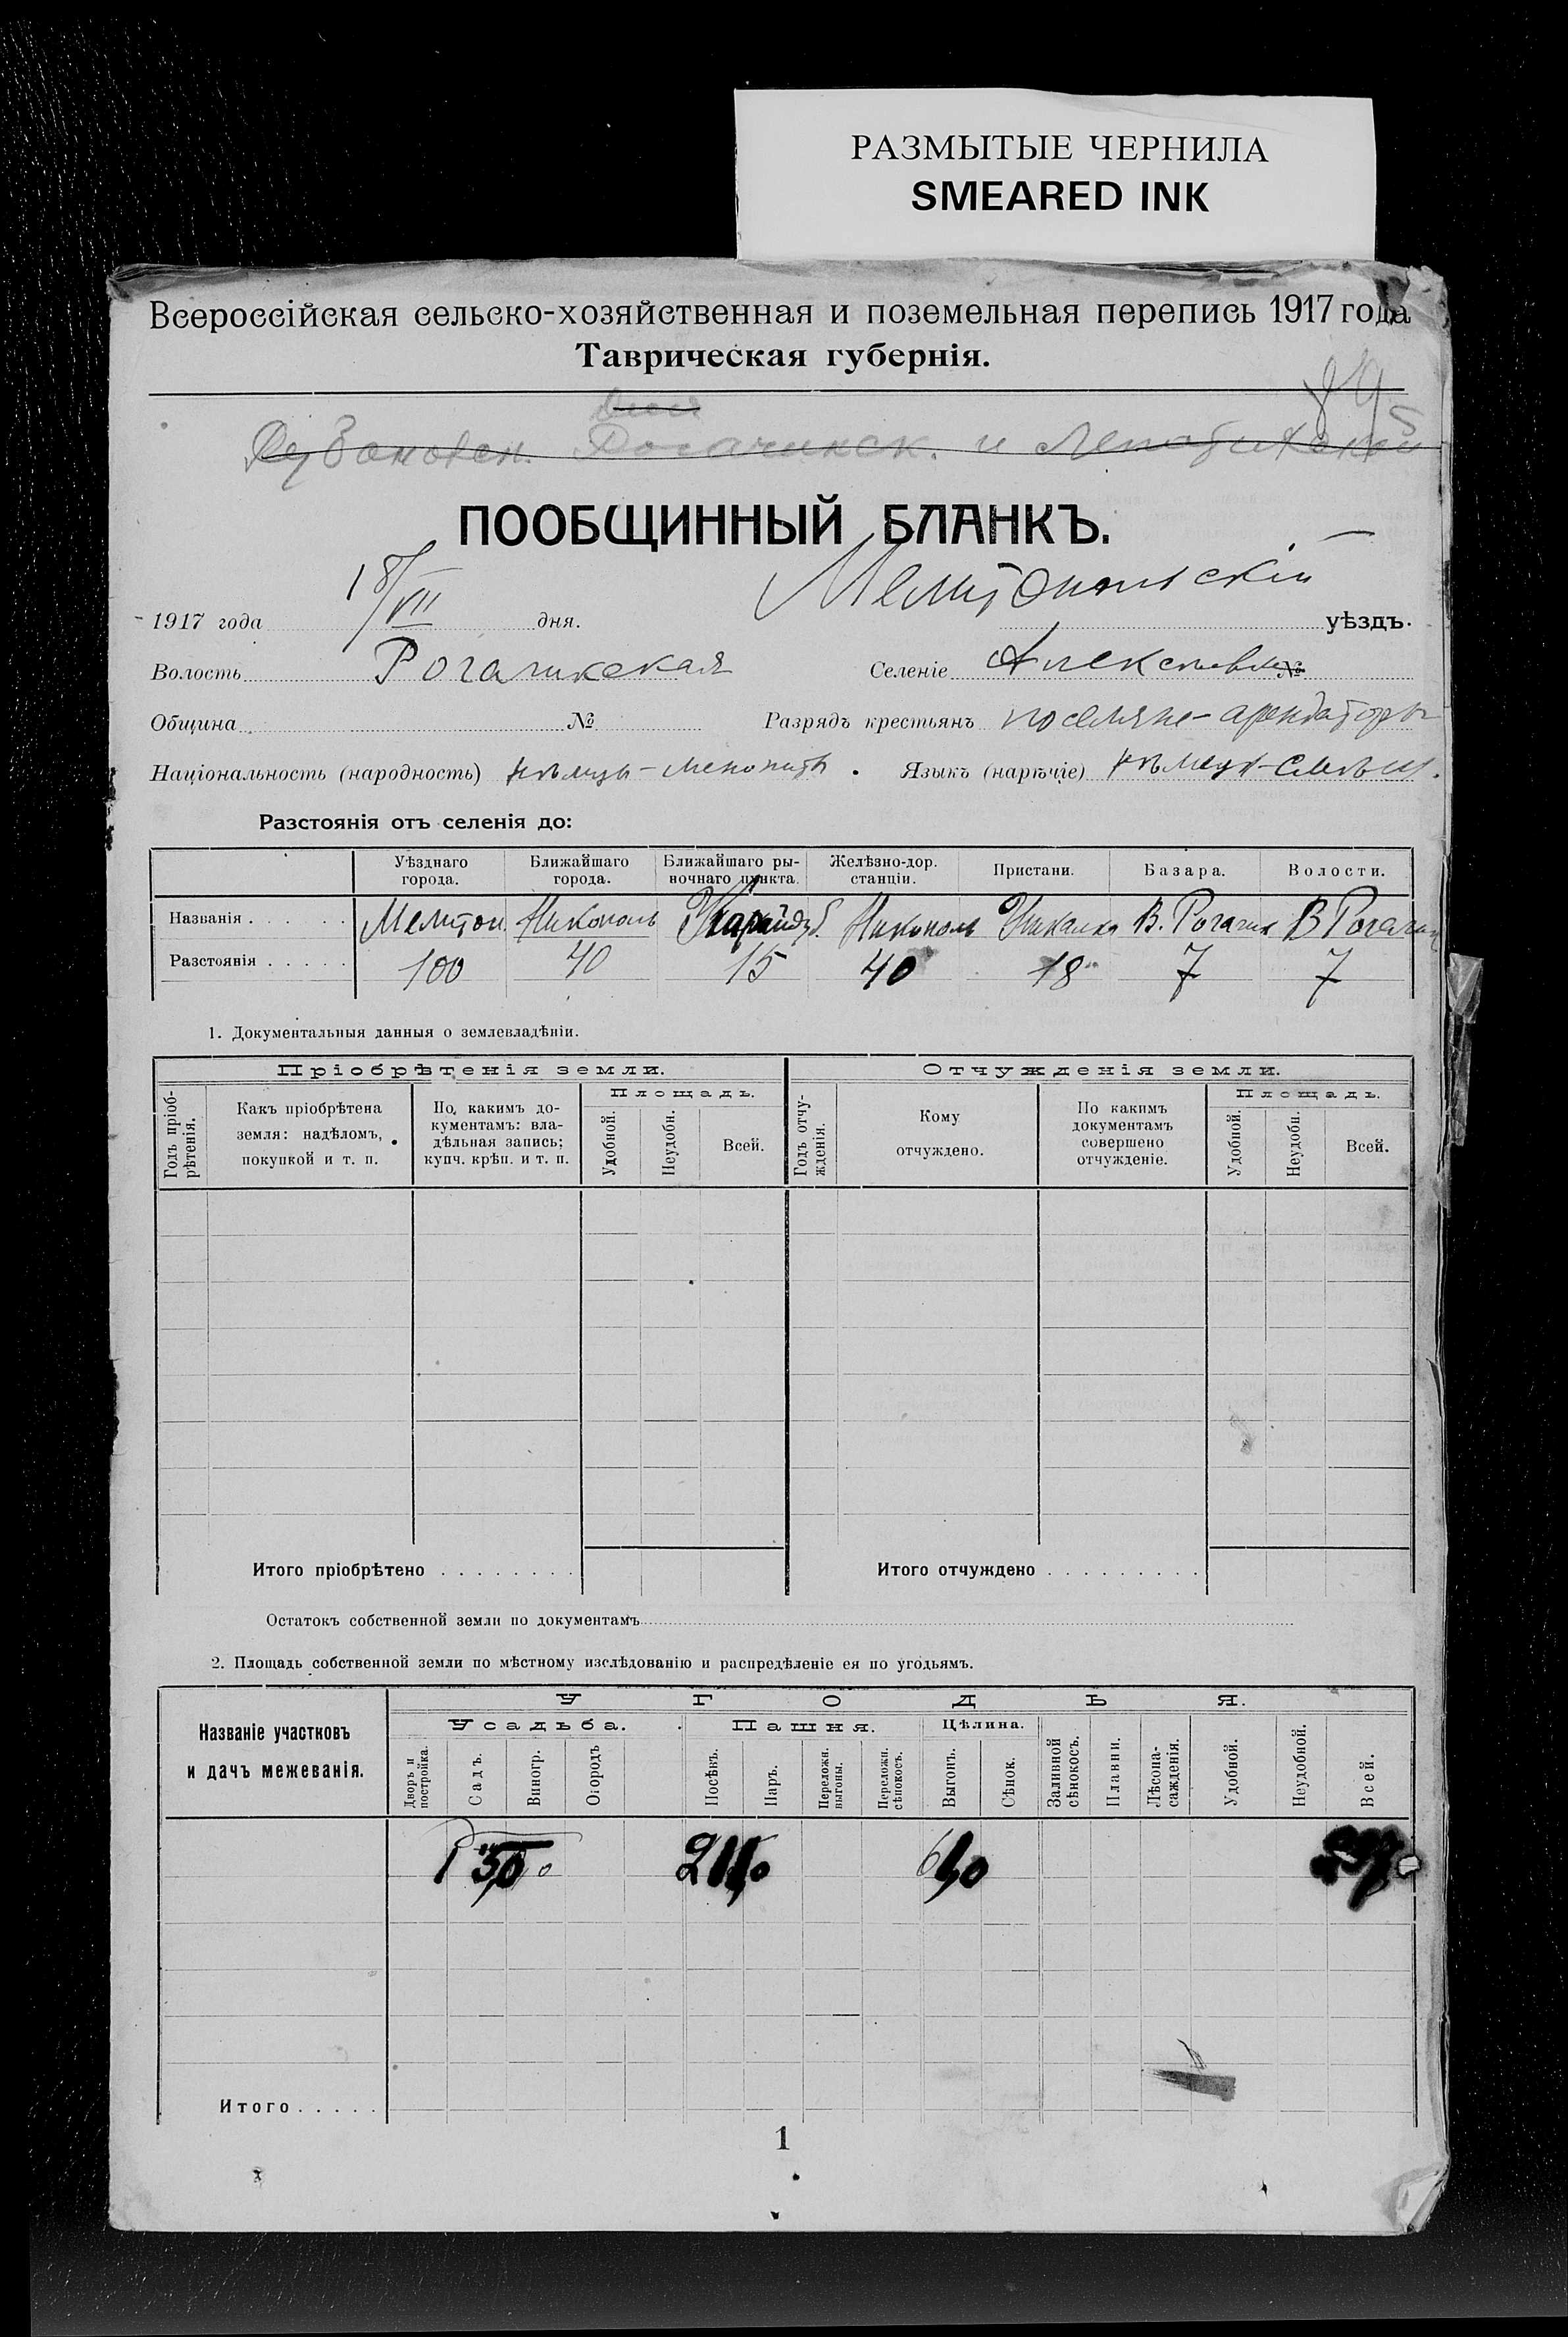 РАЗМЫТЫЕ ЧЕРНИЛА
SMEARED INK
Всероссійская сельско-хозяйственная и поземельная перепись 1917 года
Таврическая губернія.
ПООБЩИННЫЙ БЛАНКЪ.
1917 года 18/VII дня. Мелитопольскій уѣздъ.
Волость Рогачикская Селеніе №
Община № Разрядъ крестьянъ поселяне-арендаторы
Національность (народность) нѣмцы-менониты Языкъ (нарѣчіе)
Разстоянія отъ селенія до:
Уѣзднаго города. Ближайшаго города. Ближайшаго рыночнаго пункта. Желѣзно-дор. станціи. Пристани. Базара. Волости.
Названія . . . . . Мелитоп. Никополь Никополь В. Рогачик В Рогачик
Разстоянія . . . . . 100 40 15 40 18 7 7
1. Документальныя данныя о землевладѣніи.
Пріобрѣтенія земли. Отчужденія земли.
Годъ пріобрѣтенія. Какъ пріобрѣтена земля: надѣломъ, покупкой и т. п. По какимъ документамъ: владѣльная запись; купч. крѣп. и т. п. Площадь. Удобной. Неудобн. Всей. Годъ отчужденія. Кому отчуждено. По какимъ документамъ совершено отчужденіе. Площадь. Удобной. Неудобн. Всей.
Итого пріобрѣтено . . . . . . . . Итого отчуждено . . . . . . . . .
Остатокъ собственной земли по документамъ
2. Площадь собственной земли по мѣстному изслѣдованію и распредѣленіе ея по угодьямъ.
Названіе участковъ и дачъ межеванія. УГОДЬЯ.
Усадьба. Пашня. Цѣлина.
Дворъ и постройка. Садъ. Виногр. Огородъ Посѣвъ. Паръ. Переложн. выгоны. Переложн. сѣнокосъ. Выгонъ. Сѣнок. Заливной сѣнокосъ. Плавни. Лѣсонасажденія. Удобной. Неудобной. Всей.
Итого . . . . .
1